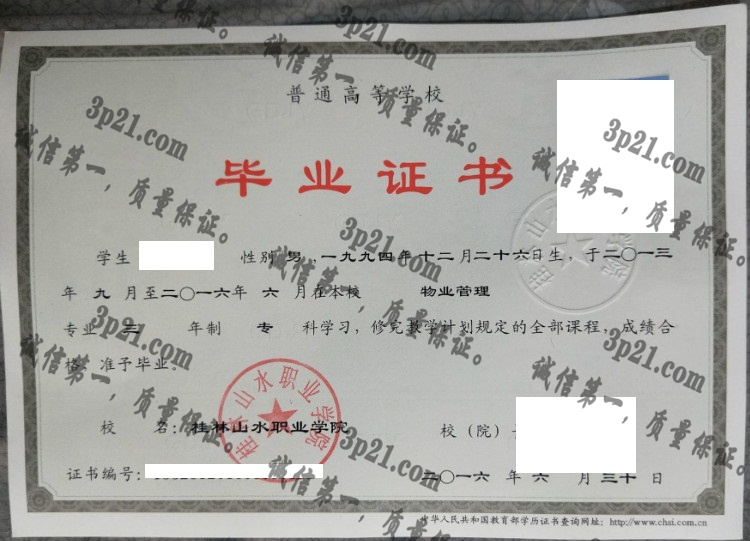 普通高等学校
毕业证书
学生 性别 男 ,一九九四年十二月二十六日生，于二〇一三
年 九 月至二〇一六年 六 月在本校 物业管理
专业 三 年制 专 科学习，修完教学计划规定的全部课程，成绩合
格，准予毕业。
桂林山水职业学院
校 名：桂林山水职业学院 校（院）
证书编号：
二〇一六 年 六 月 三十 日
中华人民共和国教育部学历证书查询网址：http://www.chsi.com.cn
3p21.com
诚信第一，质量保证。
3p21.com
诚信第一，质量保证。
3p21.com
诚信第一，质量保证。
3p21.com
诚信第一，质量保证。
3p21.com
诚信第一，质量保证。
3p21.com
诚信第一，质量保证。
3p21.com
诚信第一，质量保证。
3p21.com
诚信第一，质量保证。